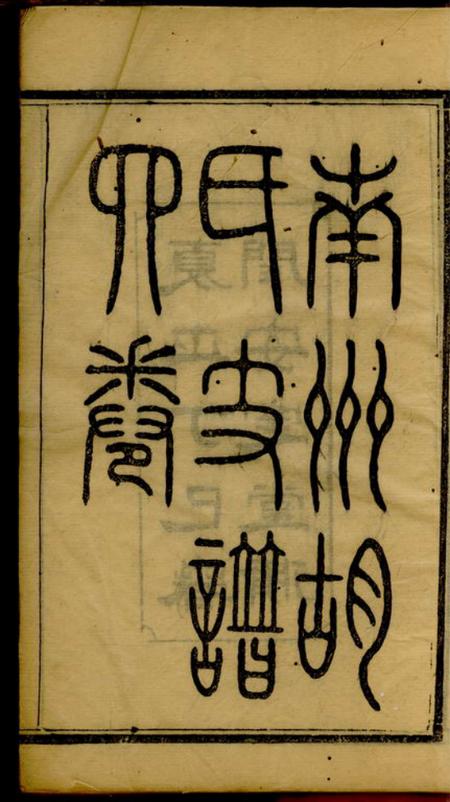 南州胡
氏支譜
四卷